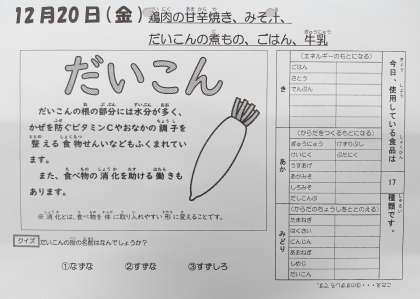 12月20日(金) 鶏肉の甘辛焼き、みそ汁、
だいこんの煮もの、ごはん、牛乳
だいこん
だいこんの根の部分には水分が多く、
かぜを防ぐビタミンCやおなかの調子を
整える食物せんいなどもふくまれてい
ます。
また、食べ物の消化を助ける働きも
あります。
※消化とは、食べ物を体に取り入れやすい形に変えることです。
クイズ だいこんの昔の名前はなんでしょうか?
①すずな ②すずな ③すずしろ
今日、使用している食品は
17
種類です。
き
(エネルギーのもとになる)
ごはん
さとう
でんぷん
あか
(からだをつくるもとになる)
ぎゅうにゅう けずりぶし
けいにく ぶたにく
うすあげ
あかみそ
しろみそ
だしこんぶ
みどり
(からだのちょうしをととのえる)
たまねぎ
はくさい
にんじん
あおねぎ
しめじ
だいこん
こたえ・・・③のすずしろです。